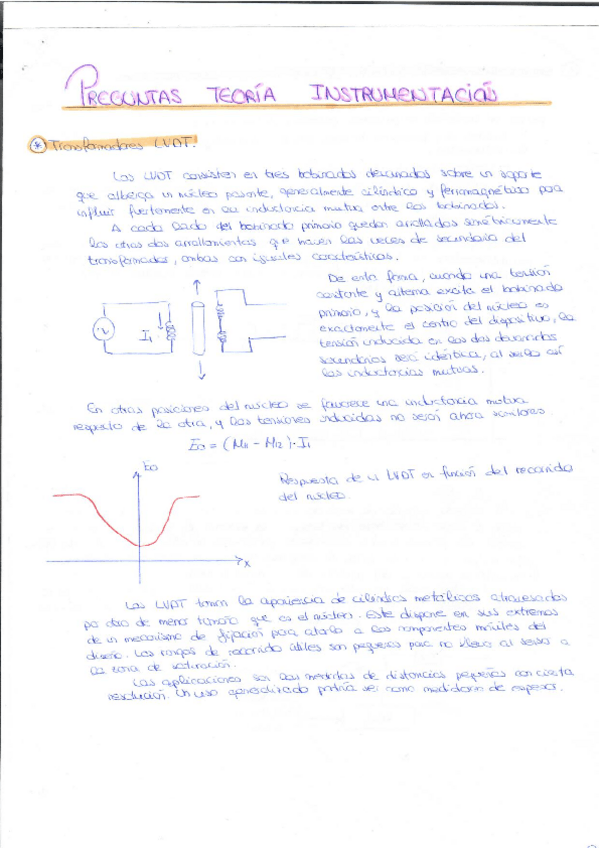 PREGUNTAS TEORÍA INSTRUMENTACIÓN
* Transformadores LVDT:
Los LVDT consisten en tres bobinados devanados sobre un soporte
que alberga un núcleo pasante, generalmente cilíndrico y ferromagnético para
influir fuertemente en la inductancia mutua entre los bobinados.
A cada lado del bobinado primario quedan arrollados simétricamente
los otros dos arrollamientos que hacen las veces de secundario del
transformador, ambos con iguales características.
De esta forma, cuando una tensión
constante y alterna excita el bobinado
primario, y la posición del núcleo es
exactamente el centro del dispositivo, la
tensión inducida en los dos devanados
secundarios será idéntica, al serlo así
las inductancias mutuas.
I1
En otras posiciones del núcleo se favorece una inductancia mutua
respecto de la otra, y las tensiones inducidas no serán ahora similares.
Eo = (M11 - M12) · I1
Eo
Respuesta de un LVDT en función del recorrido
del núcleo.
x
Los LVDT tienen la apariencia de cilindros metálicos atravesados
por otro de menor tamaño que es el núcleo. Este dispone en sus extremos
de un mecanismo de fijación para atarlo a los componentes móviles del
diseño. Los rangos de recorrido útiles son pequeños para no llevar al sensor a
la zona de saturación.
Las aplicaciones son las medidas de distancias pequeñas con cierta
resolución. Un uso generalizado podría ser como medidores de espesor.